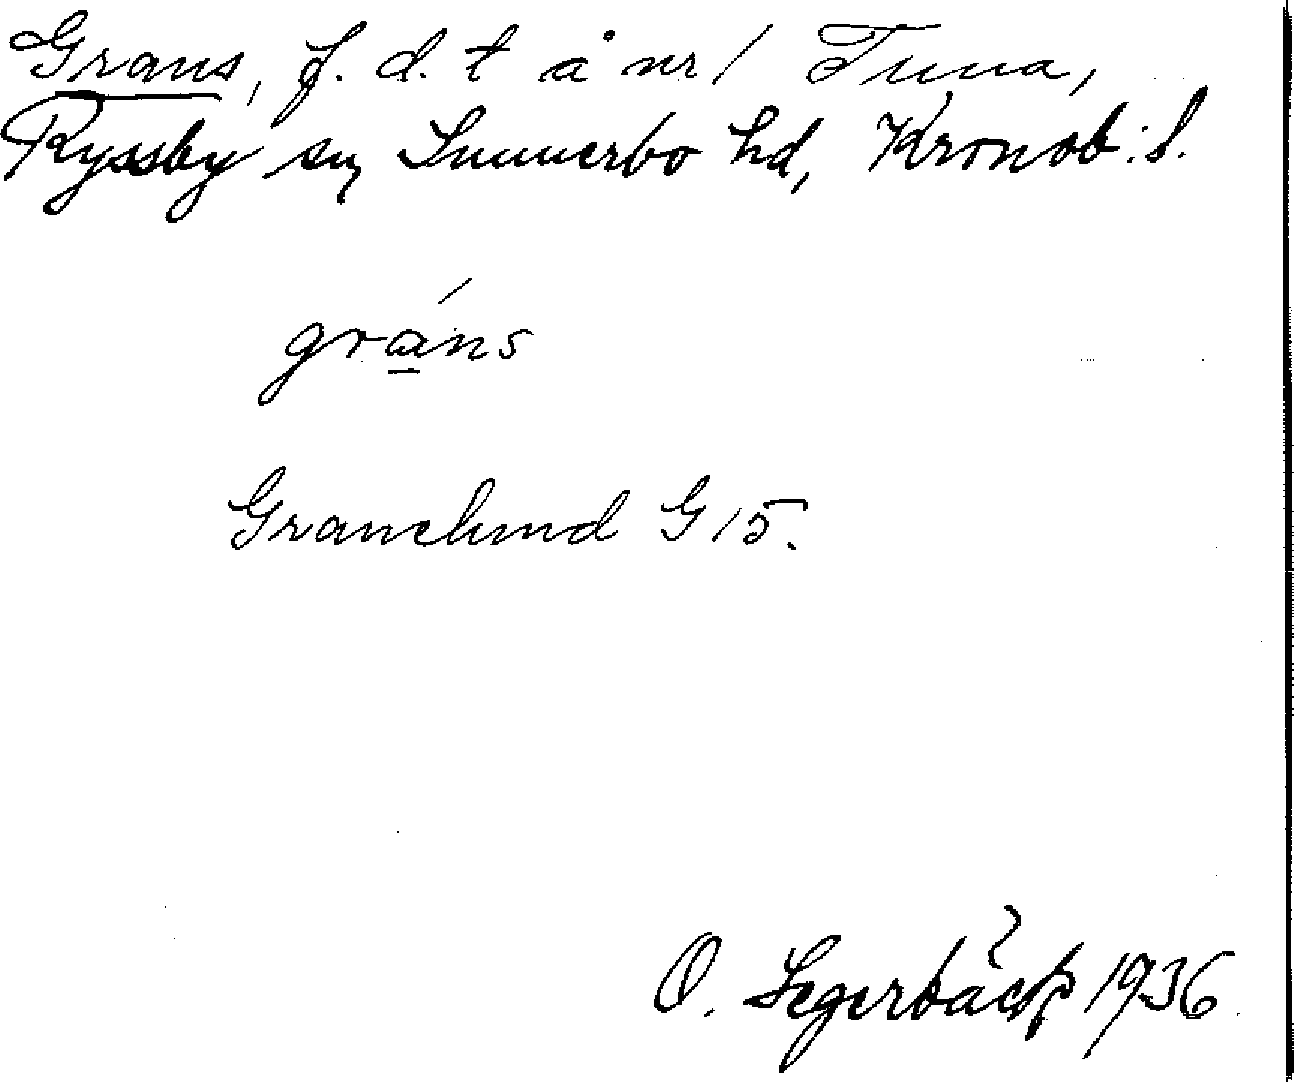 Grans, f. d. t å nr 1 Tuna,
Ryssby sn, Sunnerbo hd, Kronob. l.
gra̲´ns
Granelund G 15.
O. Segerbäck 1936.